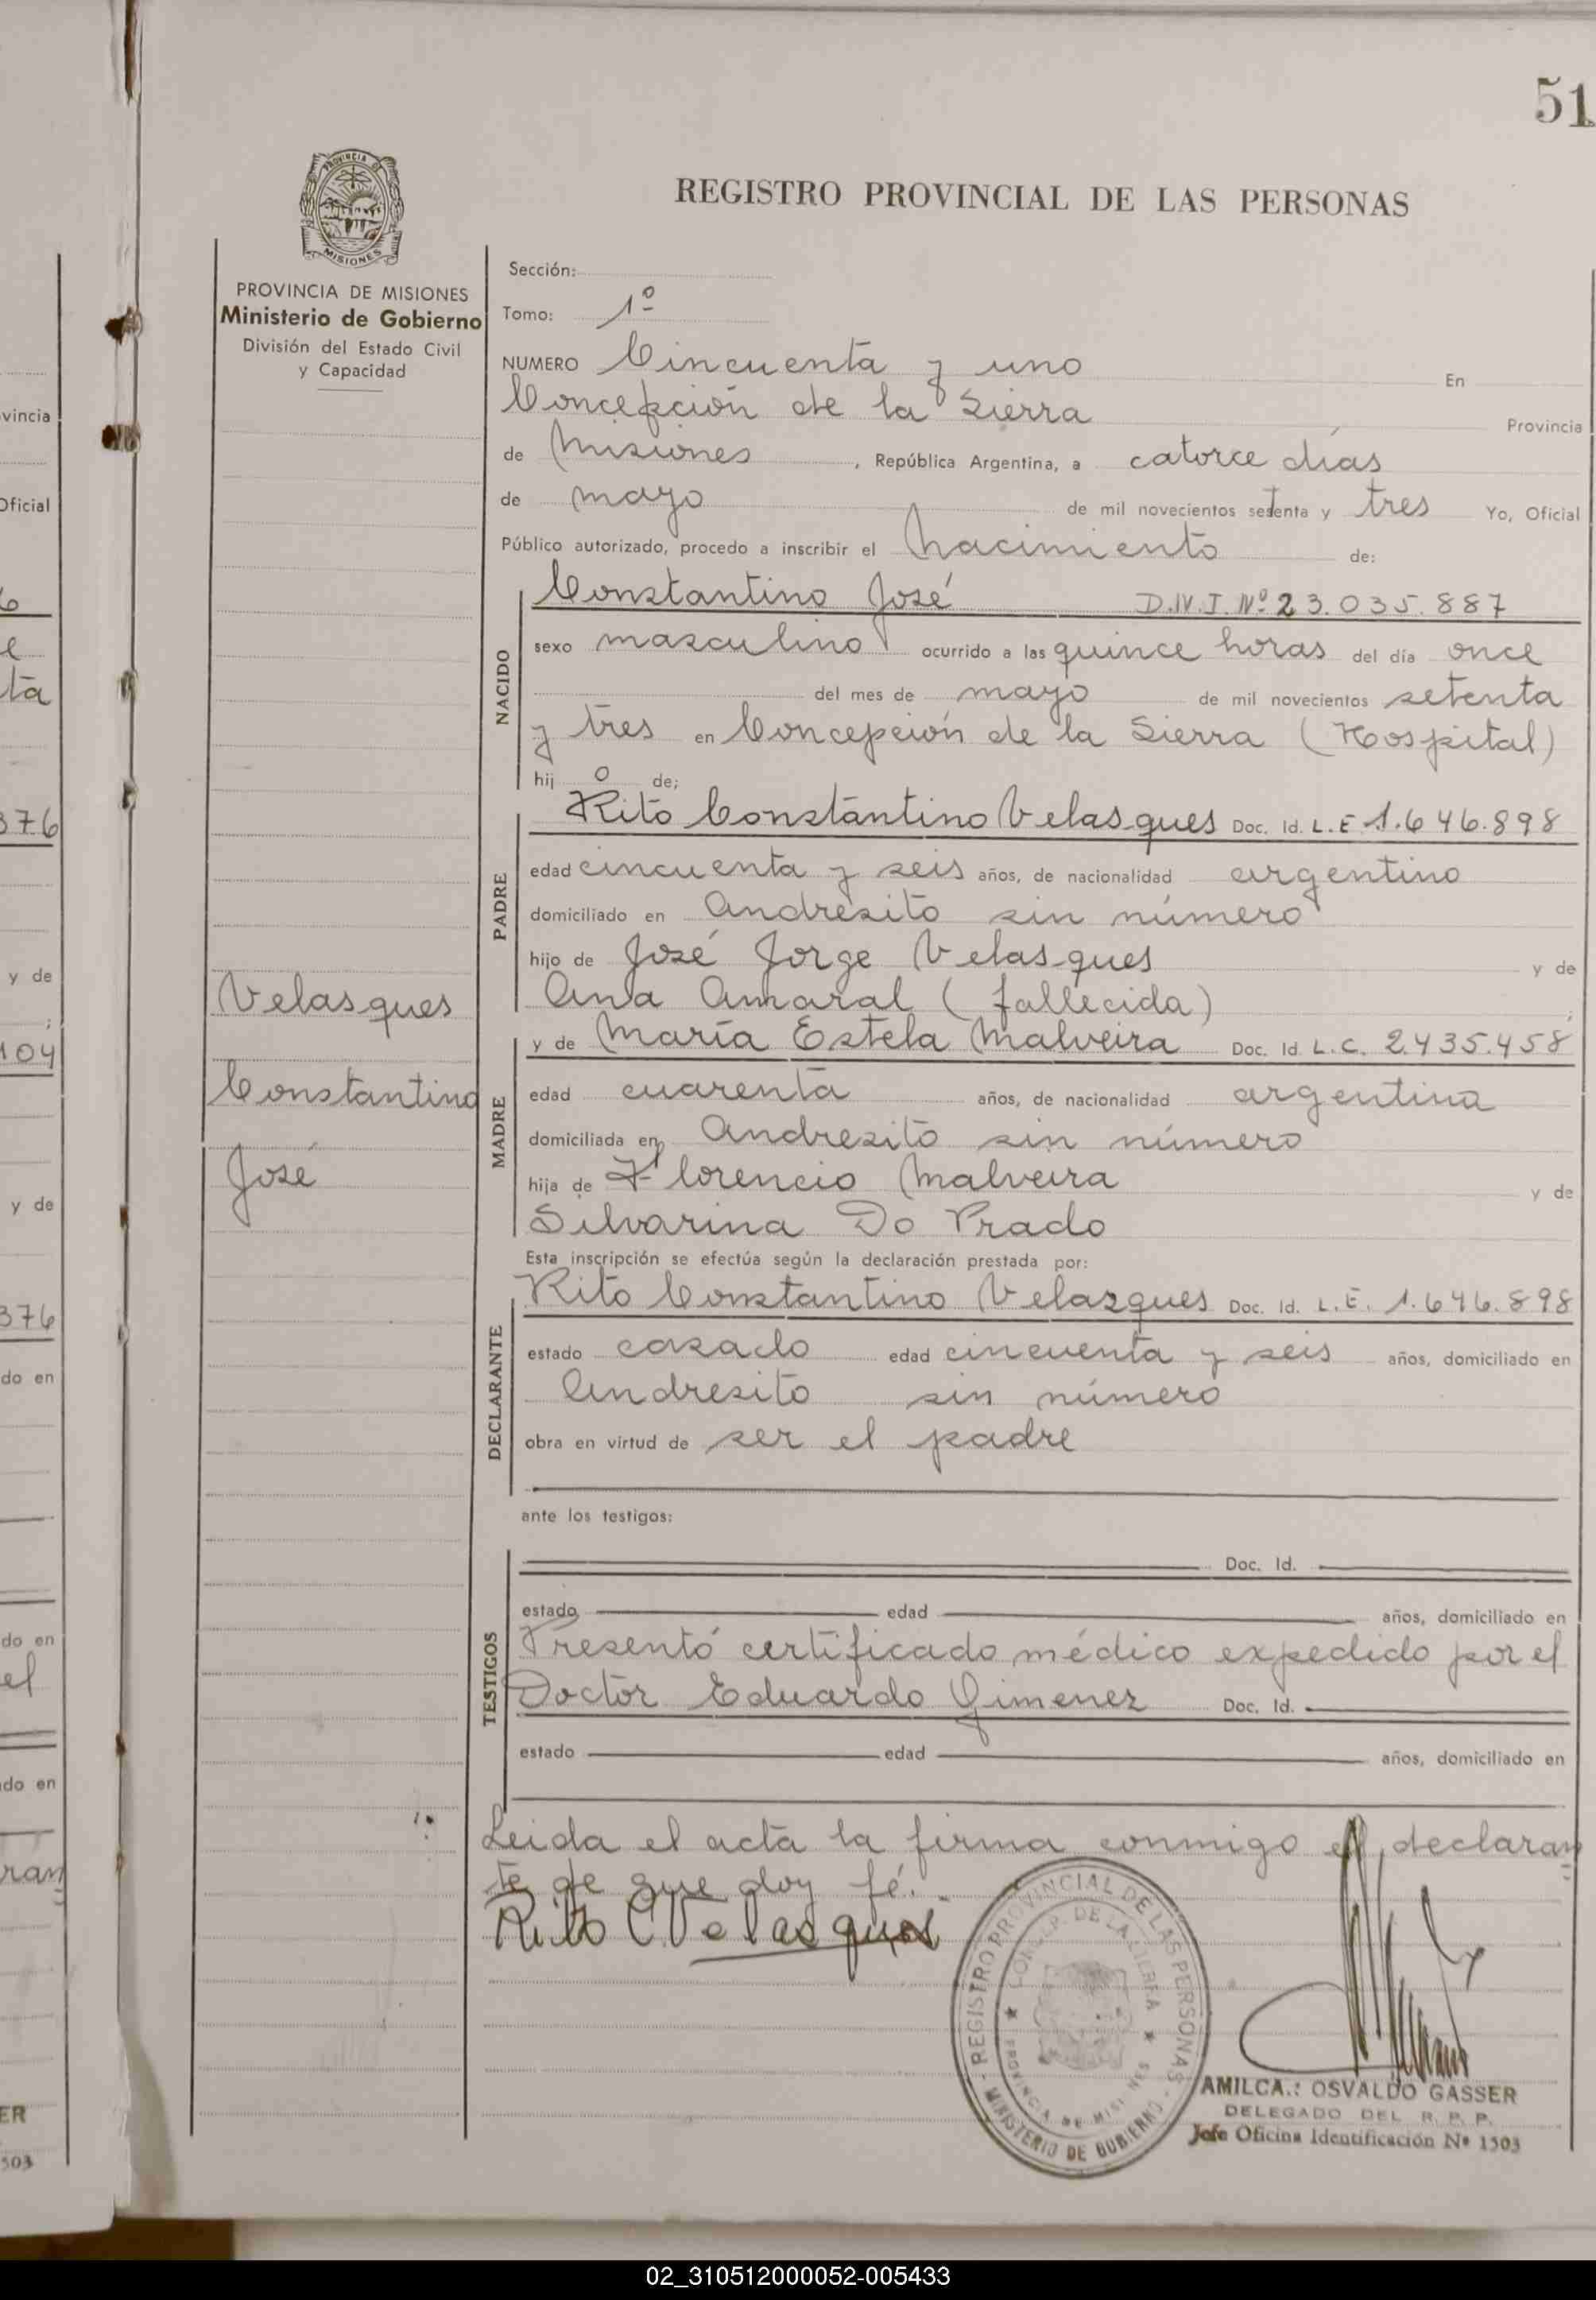 51
PROVINCIA DE
MISIONES
REGISTRO PROVINCIAL DE LAS PERSONAS
PROVINCIA DE MISIONES
Ministerio de Gobierno
División del Estado Civil
y Capacidad
Velasques
Constantino
José
Sección:
Tomo: 1º
NUMERO Cincuenta y uno En
Concepción de la Sierra Provincia
de Misiones, República Argentina, a catorce días
de mayo de mil novecientos setenta y tres Yo, Oficial
Público autorizado, procedo a inscribir el Nacimiento de:
NACIDO
Constantino José D.N.I. Nº 23.035.887
sexo masculino ocurrido a las quince horas del día once
del mes de mayo de mil novecientos setenta
y tres en Concepción de la Sierra (Hospital)
hij o de;
PADRE
Rito Constantino Velasques Doc. Id. L.E 1.646.898
edad cincuenta y seis años, de nacionalidad argentino
domiciliado en Andresito sin número
hijo de José Jorge Velasques y de
Ana Amaral (fallecida) ;
MADRE
y de María Estela Malveira Doc. Id. L.C. 2.435.458
edad cuarenta años, de nacionalidad argentina
domiciliada en Andresito sin número
hija de Florencio Malveira y de
Silvarina Do Prado
Esta inscripción se efectúa según la declaración prestada por:
DECLARANTE
Rito Constantino Velazques Doc. Id. L.E. 1.646.898
estado casado edad cincuenta y seis años, domiciliado en
Andresito sin número
obra en virtud de ser el padre
ante los testigos:
TESTIGOS
Doc. Id.
estado edad años, domiciliado en
Presentó certificado médico expedido por el
Doctor Eduardo Gimenez Doc. Id.
estado edad años, domiciliado en
Leida el acta la firma conmigo el declaran
te de que doy fé.
Rito C. Velasques
REGISTRO PROVINCIAL DE LAS PERSONAS
CONCEP. DE LA SIERRA
PROVINCIA DE MISIONES
MINISTERIO DE GOBIERNO
AMILCA.: OSVALDO GASSER
DELEGADO DEL R. P. P.
Jefe Oficina Identificación Nº 1503
vincia
Oficial
376
y de
104
y de
376
do en
do en
el
do en
ran
ER
503
02_310512000052-005433